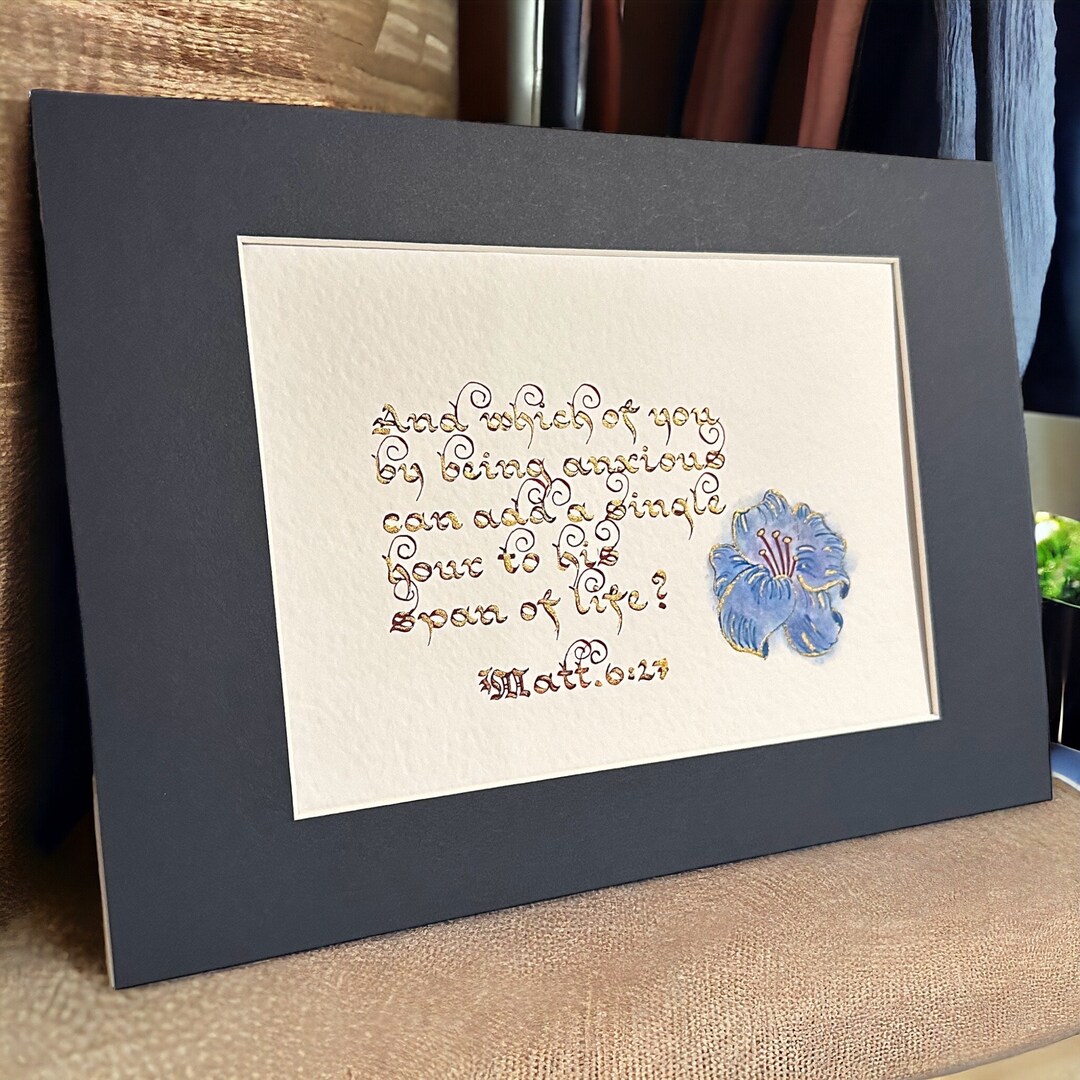 And which of you
by being anxious
can add a single
hour to his
span of life?
Matt. 6:27